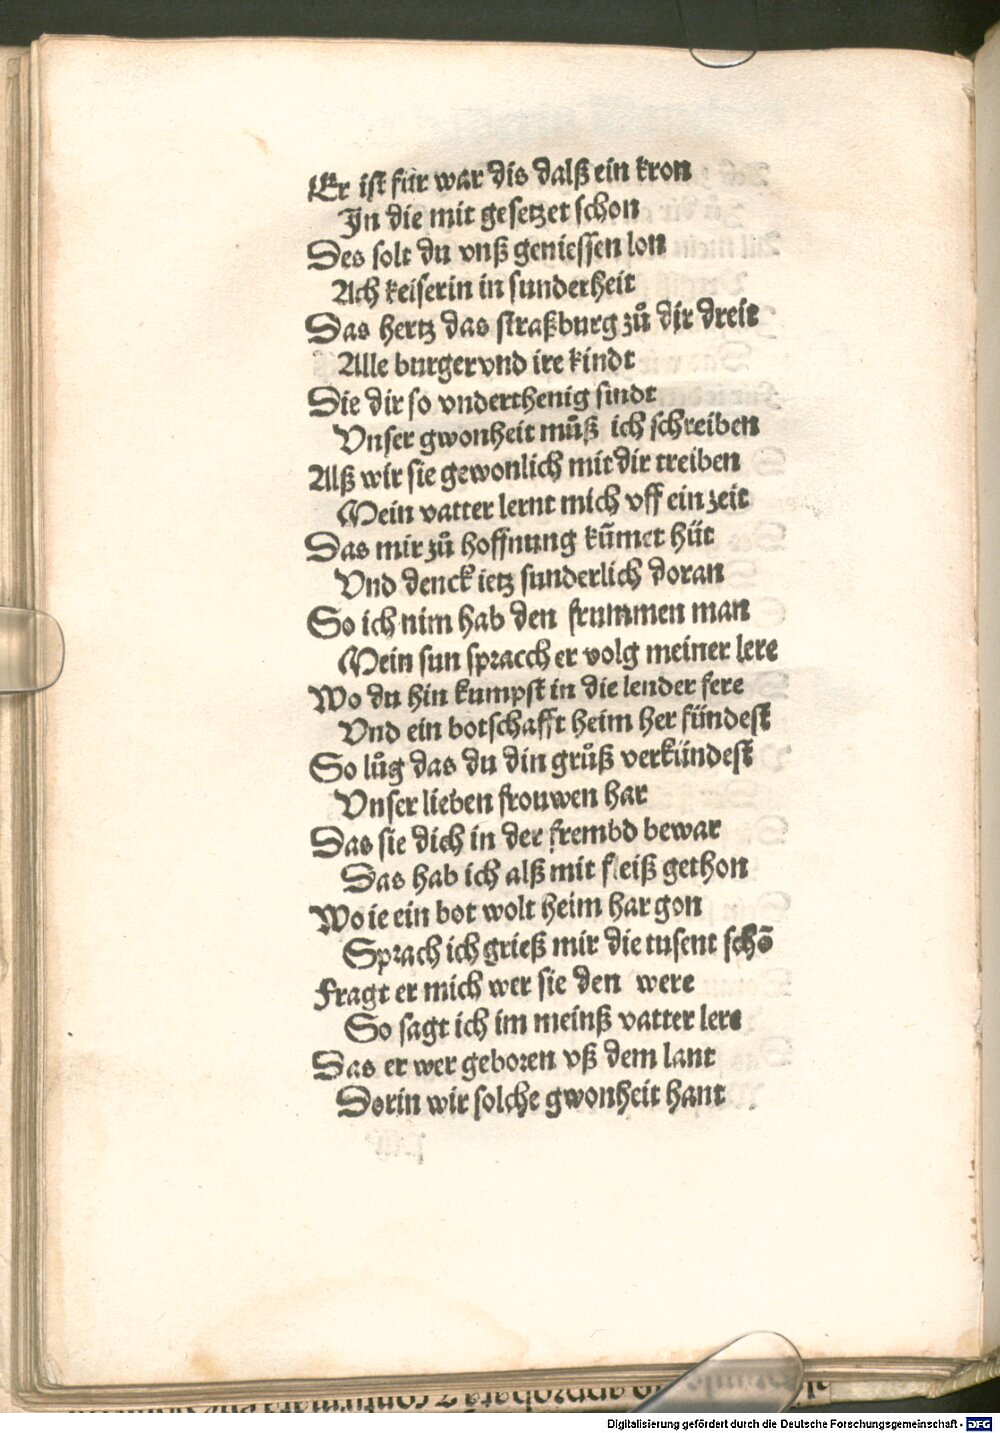 Er ist für war dis dalß ein kron
In die mit gesetzet schon
Des solt du vnß geniessen lon
Ach keiserin in sunderheit
Das hertz das straßburg zů dir dreit
Alle burger vnd ire kindt
Die dir so vnderthenig sindt
Vnser gwonheit můß ich schreiben
Alß wir sie gewonlich mit dir treiben
Mein vatter lernt mich vff ein zeit
Das mir zů hoffnung kūmet hüt
Vnd denck ietz sunderlich doran
So ich nim hab den frummen man
Mein sun spracch er volg meiner lere
Wo du hin kumpst in die lender fere
Vnd ein botschafft heim her fündest
So lůg das du din grůß verkündest
Vnser lieben frouwen har
Das sie dich in der frembd bewar
Das hab ich alß mit fleiß gethon
Wo ie ein bot wolt heim har gon
Sprach ich grieß mir die tusent schō
Fragt er mich wer sie den were
So sagt ich im meinß vatter lere
Das er wer geboren vß dem lant
Dorin wir solche gwonheit hant
Digitalisierung gefördert durch die Deutsche Forschungsgemeinschaft - DFG